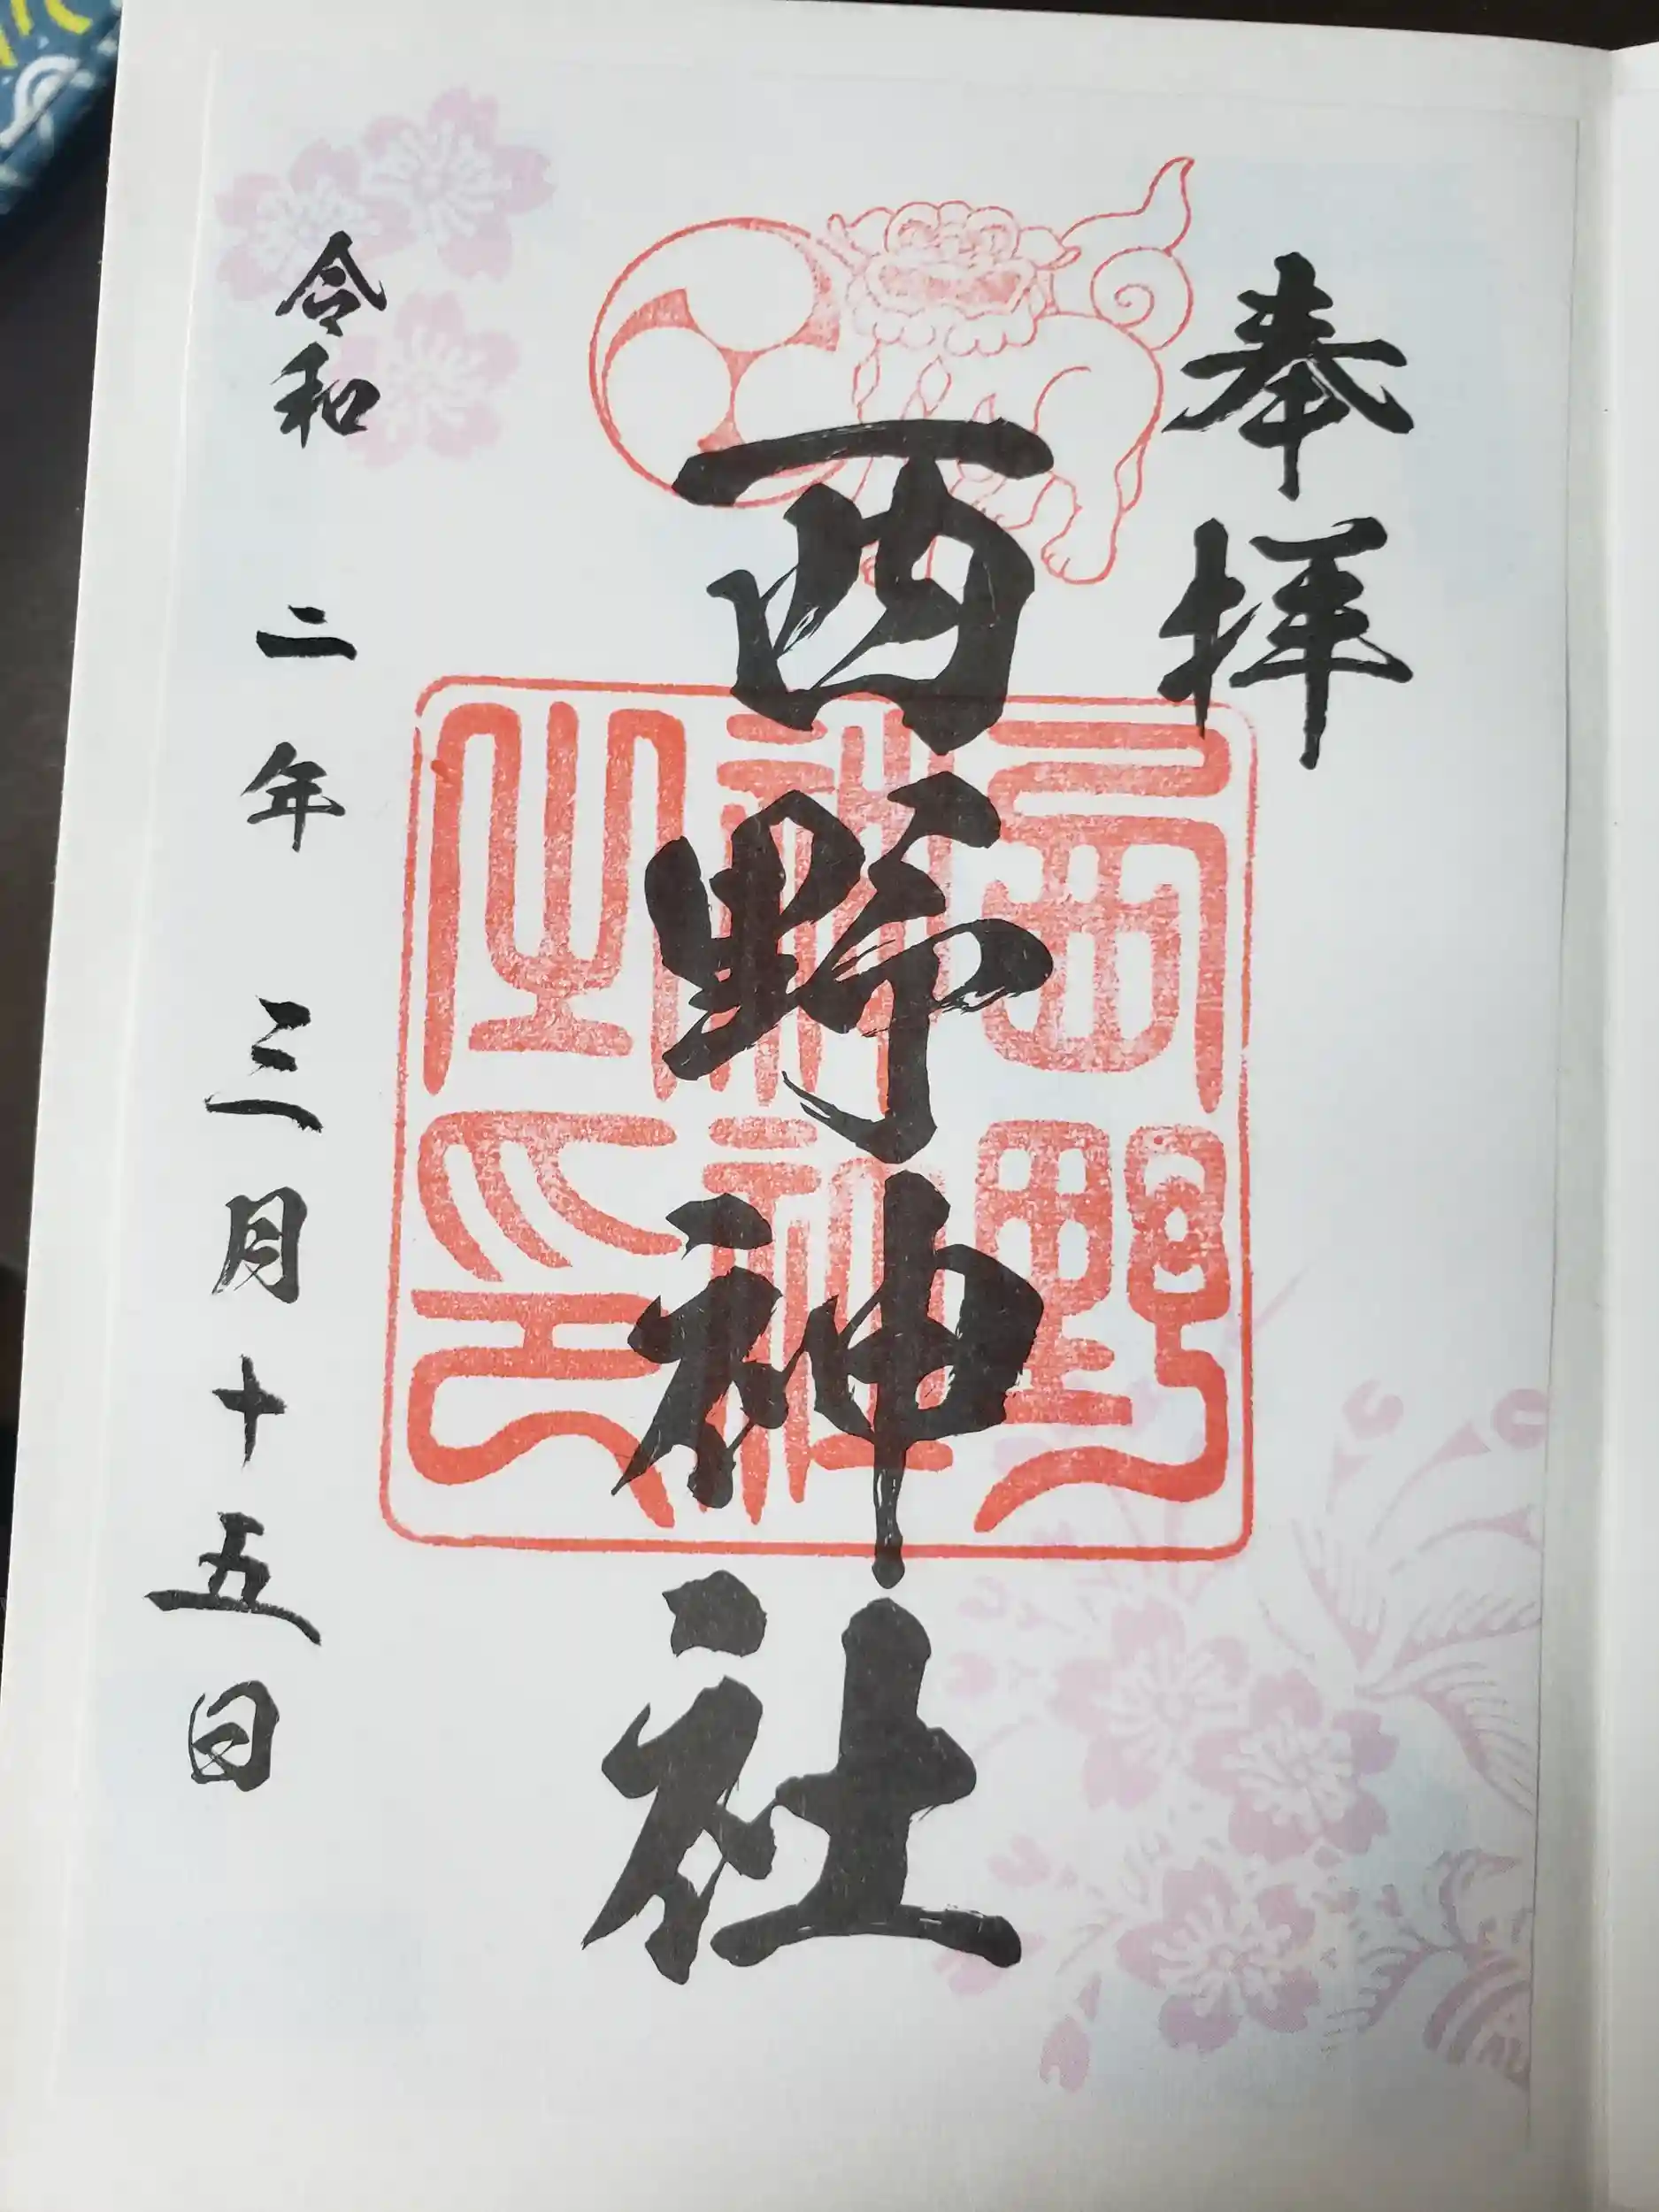 奉拝
西野神社
西野神社之印
令和二年三月十五日